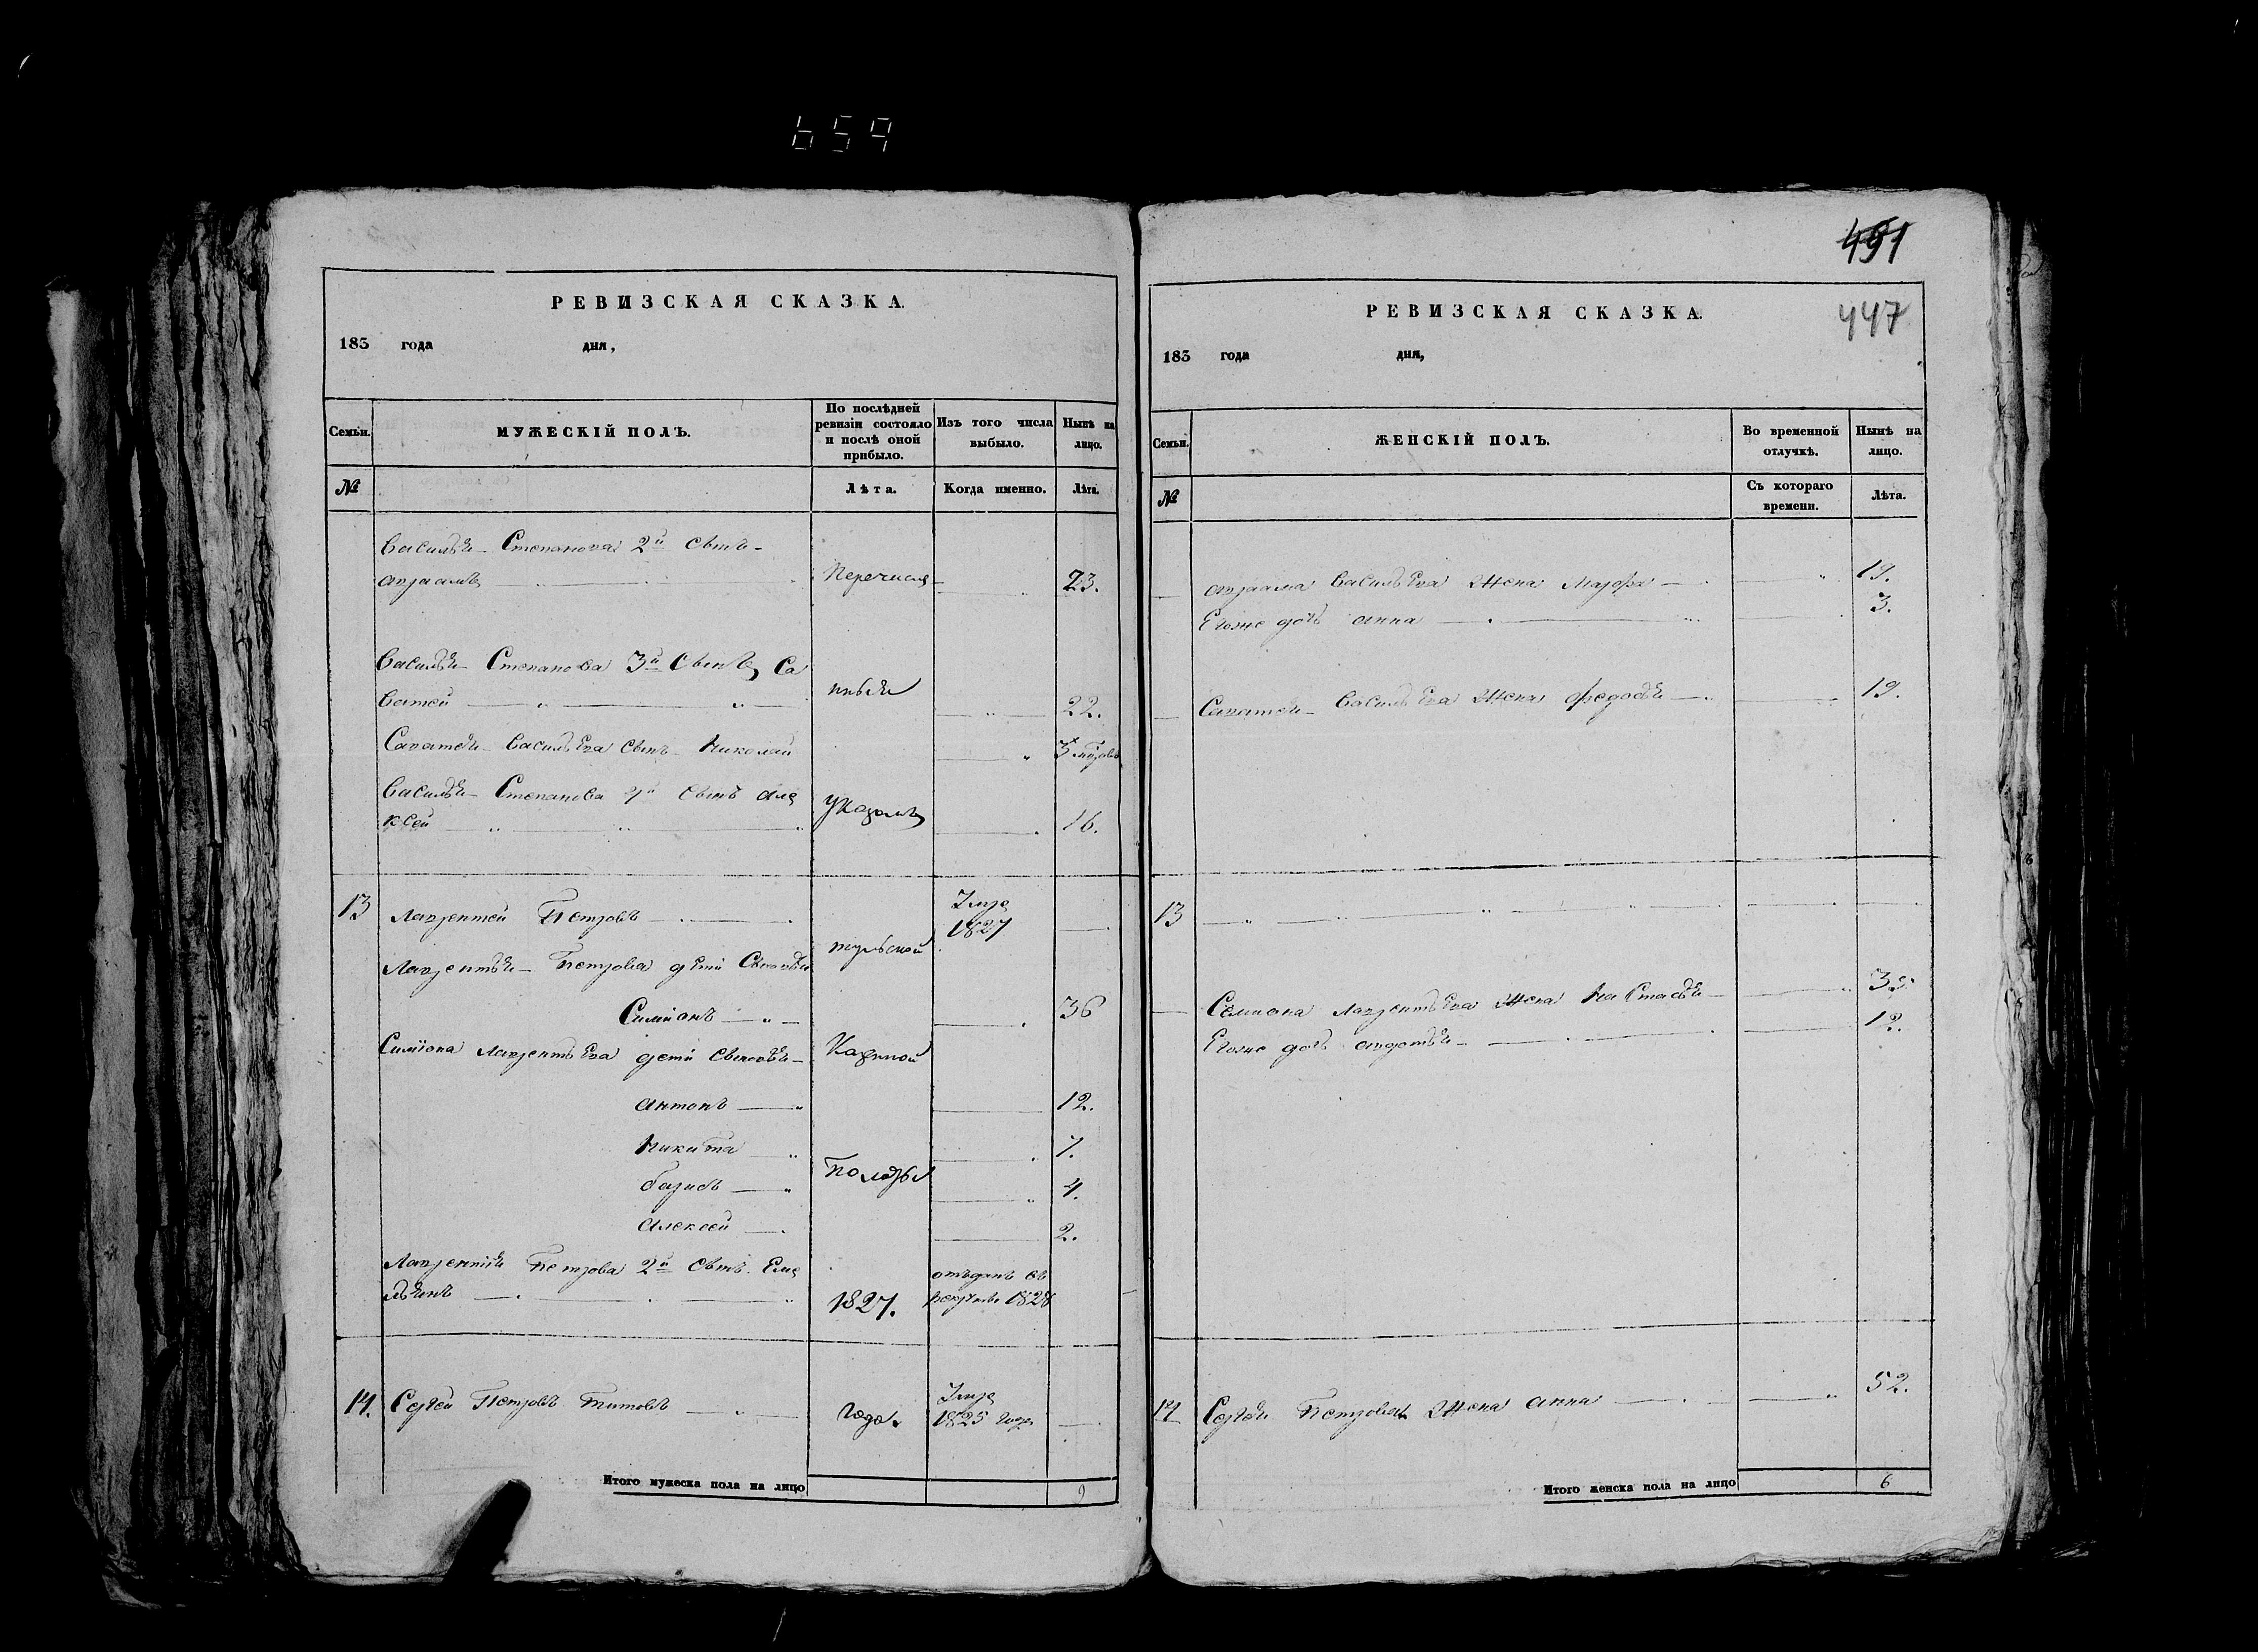 659
РЕВИЗСКАЯ СКАЗКА.
183 года дня,
Семьи.
МУЖЕСКІЙ ПОЛЪ.
По послѣдней ревизіи состояло и послѣ оной прибыло.
Изъ того числа выбыло.
Нынѣ на лицо.
№
Лѣта.
Когда именно.
Лѣта.
Василья Степанова 2й сынъ
авраамъ перечисле 23.
Василья Степанова 3й сынъ Са
ватей нныя 22.
Саватея Васильева сынъ Николай 3х
Василья Степанова 4й сынъ але
ксей указомъ 16.
13 Лаврентей Петровъ Умре 1827
Лаврентья Петрова дети Сыновья тульской
Симионъ 36
Симиона Лаврентьева дети Сыновья Казеной
антонъ 12.
Никита 7.
борисъ Полаты 4.
алексей 2.
Лаврентия Петрова 2й сынъ Еме
льянъ 1827. отъданъ въ рекруты 1828
14. Сергей Петровъ Титовъ года. Умре 1825 года
Итого мужеска пола на лицо 9
491
447
РЕВИЗСКАЯ СКАЗКА.
183 года дня,
Семьи.
ЖЕНСКІЙ ПОЛЪ.
Во временной отлучкѣ.
Нынѣ на лицо.
№
Съ котораго времени.
Лѣта.
авраама Васильева жена Марфа 19.
Егоже дочь анна 3.
Саватея Васильева жена федосья 19.
13
Семиона Лаврентьева жена Настасья 35.
Егоже дочь авдотья 12.
14 Сергея Петрова жена анна 52.
Итого женска пола на лицо 6